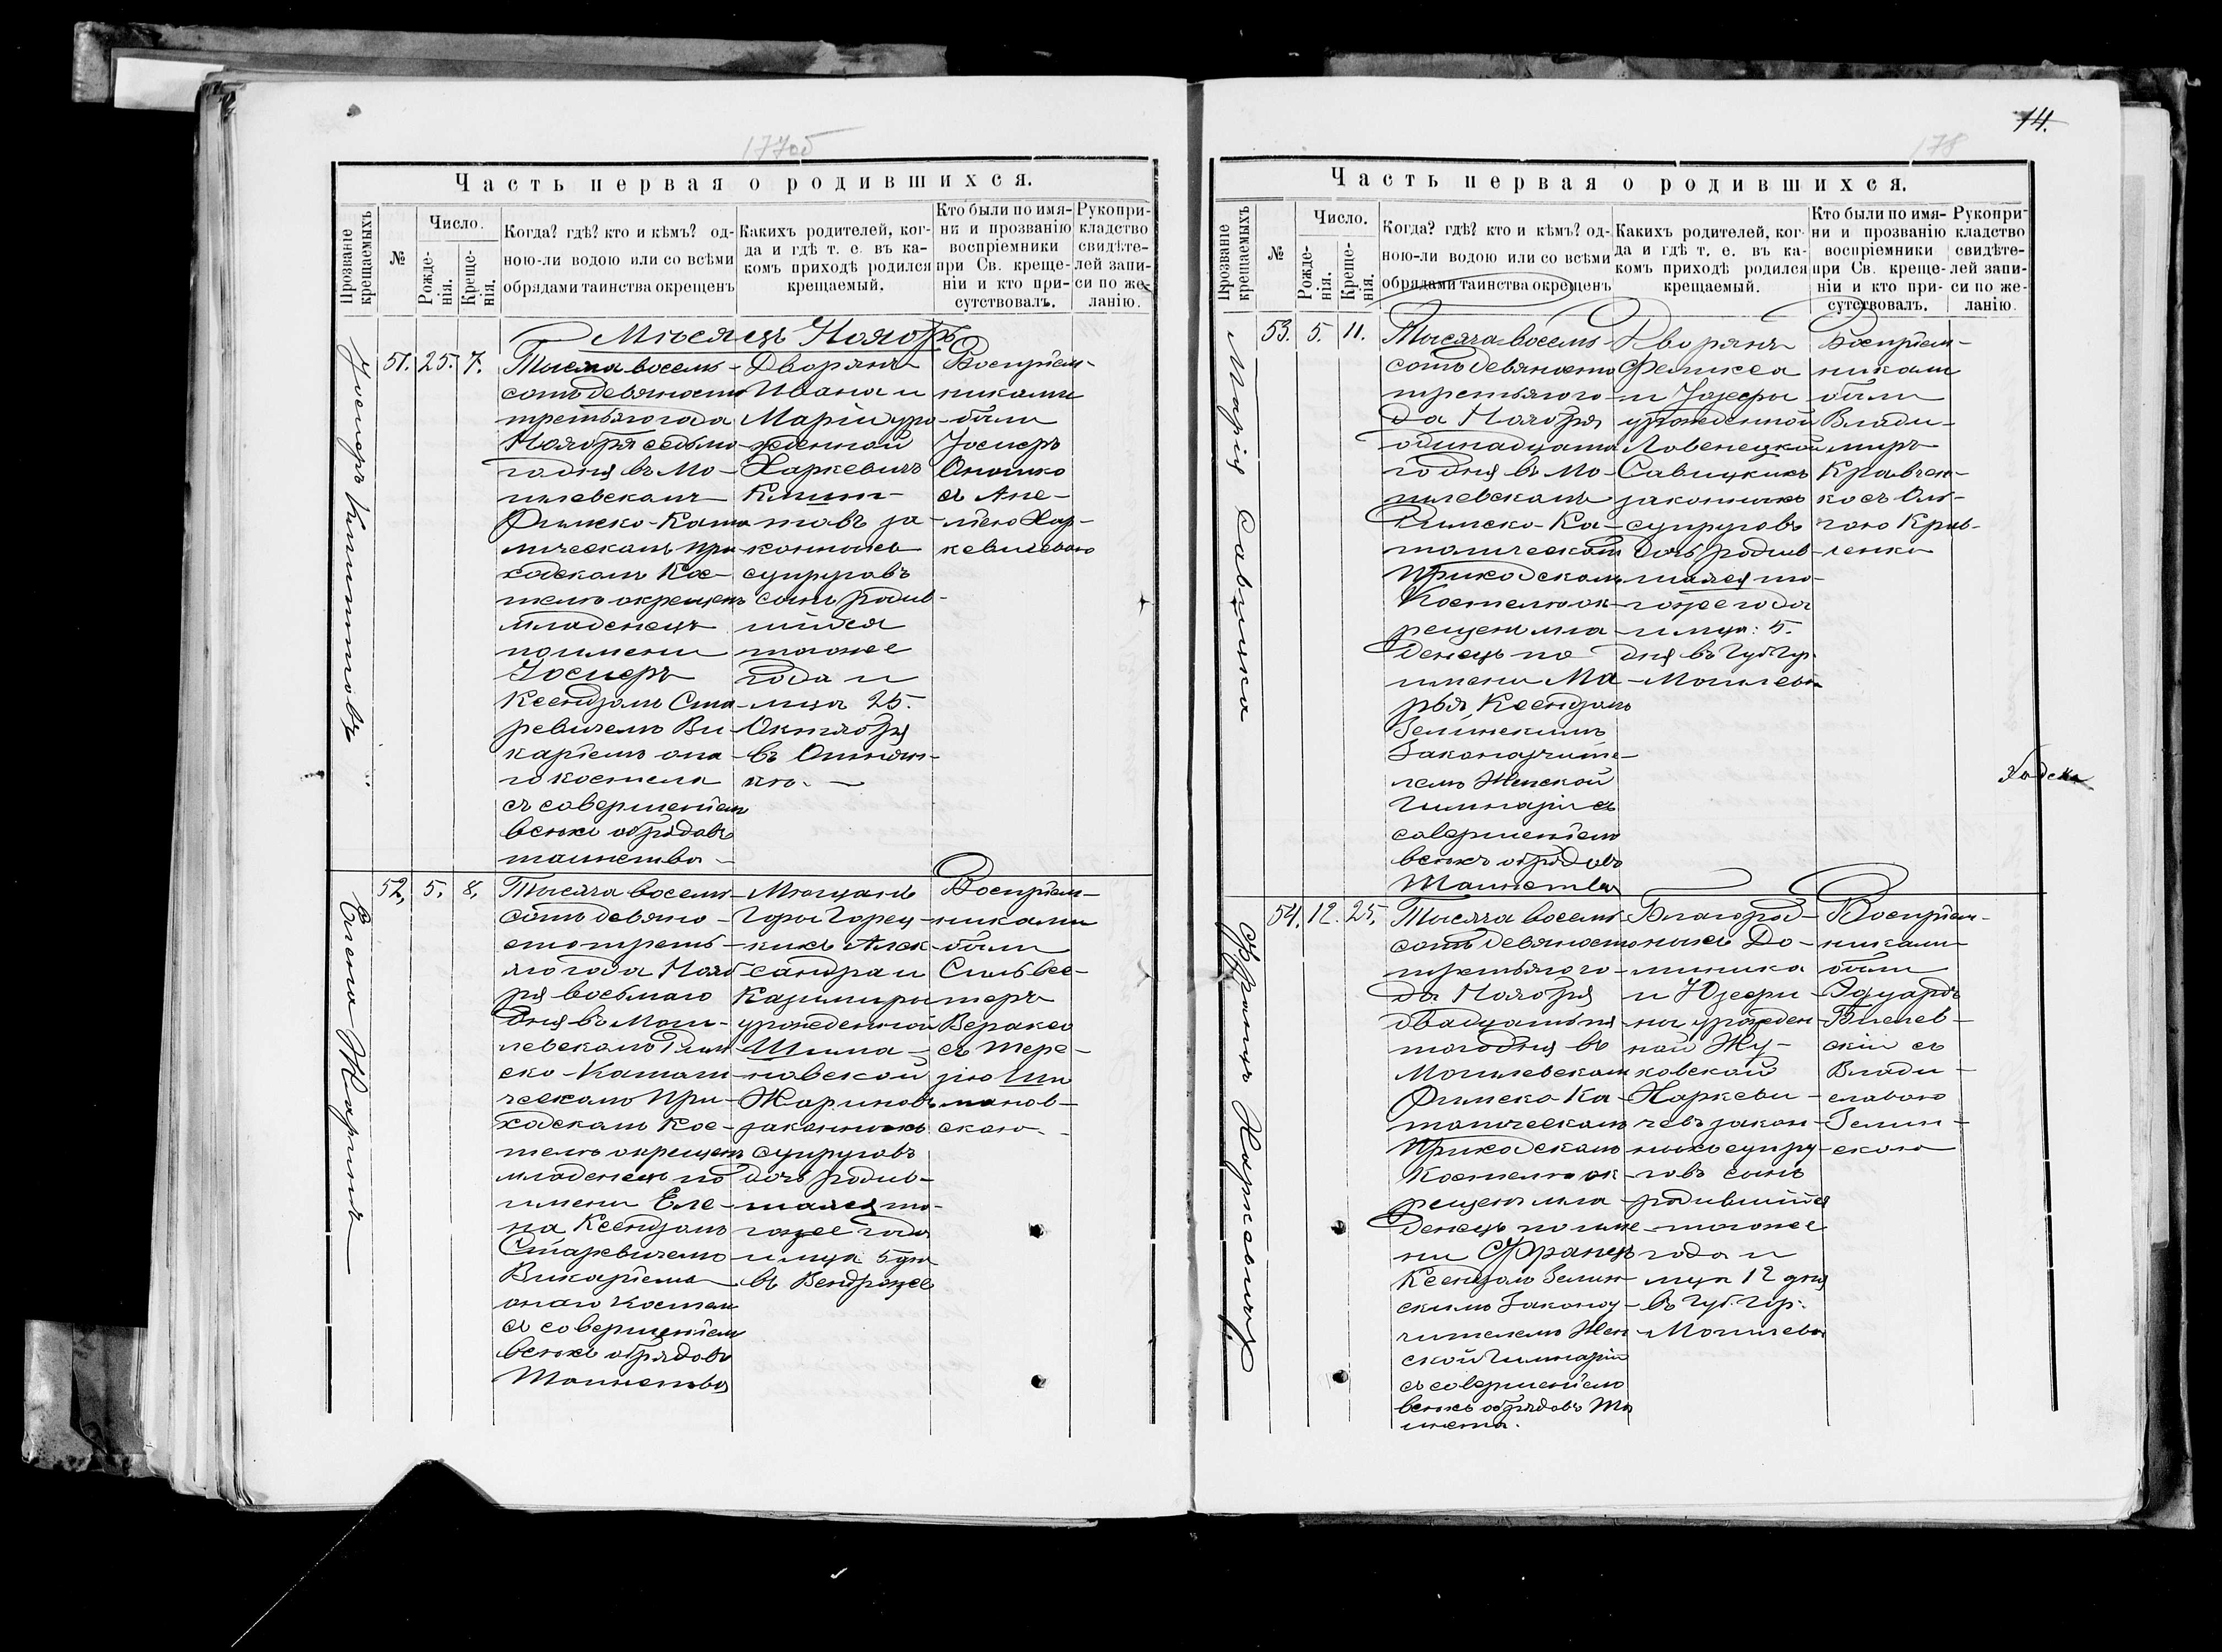 177об
Часть первая о родившихся.
Прозваніе крещаемыхъ
№
Число.
Рожде-
нія.
Креще-
нія.
Когда? гдѣ? кто и кѣмъ? од-
ною-ли водою или со всѣми
обрядами таинства окрещенъ
Какихъ родителей, ког-
да и гдѣ т. е. въ ка-
комъ приходѣ родился
крещаемый.
Кто были по имя-
ни и прозванію
воспріемники
при Св. креще-
ніи и кто при-
сутствовалъ.
Рукопри-
кладство
свидѣте-
лей запи-
си по же-
ланію.
Мѣсяцъ Ноябрь
Іосифъ Климентовъ
51. 25. 7.
Тысяча восемь-
сотъ девяносто
третьяго года
Ноября седьмо-
го дня въ Мо-
гилевскомъ
Римско-Като-
лическомъ при-
ходскомъ Кос-
телѣ окрещенъ
младенецъ
по имени
Іосифъ
Ксендзомъ Ста-
ревичемъ Ви-
каріемъ она-
го костела
съ совершеніемъ
всѣхъ обрядовъ
таинства
Дворянъ
Ивана и
Маріи уро-
жденной
Харкевичъ
за-
конныхъ
супруговъ
сынъ родив-
шійся
того же
года и
мца 25.
Октября
Воспріем-
никами
были
Іосифъ
Оношко
съ Аме-
ліею Хар-
кевичевою
Елена Жаринъ
52, 5. 8.
Тысяча восемь-
сотъ девяно-
сто треть-
яго года Нояб-
ря восьмаго
дня въ Моги-
левскомъ Рим-
ско-Католи-
ческомъ При-
ходскомъ Кос-
телѣ окрещенъ
младенецъ по
имени Еле-
на Ксендзомъ
Старевичемъ
Викаріемъ
онаго костела
съ совершеніемъ
всѣхъ обрядовъ
Таинства
Мѣщанъ
Горы Горец-
кихъ Алек-
сандра и
Казимиры
урожденной
Шима-
новской
Жариновъ
законныхъ
супруговъ
дочь родив-
шаяся то-
гоже года
и мца 5 дня
въ Вендроже
Воспріем-
никами
были
Сильвес-
теръ
Вераксо
съ Тере-
зіею Ши
манов-
скою.
14.
178
Часть первая о родившихся.
Прозваніе крещаемыхъ
№
Число.
Рожде-
нія.
Креще-
нія.
Когда? гдѣ? кто и кѣмъ? од-
ною-ли водою или со всѣми
обрядами таинства окрещенъ
Какихъ родителей, ког-
да и гдѣ т. е. въ ка-
комъ приходѣ родился
крещаемый.
Кто были по имя-
ни и прозванію
воспріемники
при Св. креще-
ніи и кто при-
сутствовалъ.
Рукопри-
кладство
свидѣте-
лей запи-
си по же-
ланію.
Марія Савицка
53. 5. 11.
Тысяча восемь-
сотъ девяносто
третьяго го-
да Ноября
одинадцата
го дня въ Мо-
гилевскомъ
Римско-Ка-
толическомъ
Приходскомъ
Костелѣ ок-
рещенъ мла-
денецъ по
имени Ма-
рья, Ксендзомъ
Зелинскимъ
Законоучите-
лемъ Женской
Гимназіи съ
совершеніемъ
всѣхъ обрядовъ
Таинства
Дворянъ
Феликса
и Іозефы
урожденной
Ловенецкой
Савицкихъ
законныхъ
супруговъ
дочь родив-
шаяся то-
гоже года
и мца: 5.
дня въ Губ. гор.
Могилевѣ
Воспріем-
никами
были
Влади-
миръ
Кравчен-
ко съ Оль-
гою Крав-
ченко
Францъ Харкевичъ
54. 12. 25.
Тысяча восемь-
сотъ девяносто
третьяго го-
да Ноября
двадцать пя-
того дня въ
Могилевскомъ
Римско-Ка-
толическомъ
Приходскомъ
Костелѣ ок-
рещенъ мла-
денецъ по име-
ни Францъ
Ксендзомъ Зелин-
скимъ Законоу-
чителемъ Жен-
ской Гимназіи
съ совершеніемъ
всѣхъ обрядовъ Та
инства.
Благород-
ныхъ До-
миника
и Юзефи-
ны урожден-
ной Жу-
ковской
Харкеви-
чевъ закон-
ныхъ супру-
говъ сынъ
родившійся
того же
года и
мца 12 дня
въ Губ. гор.
Могилевѣ
Воспріем-
никами
были
Эдуардъ
съ
Влади-
славою
Зелин-
скою